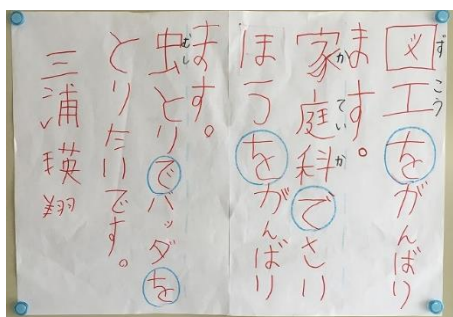 図工をがんばり
ます。
家庭科でさい
ほうをがんばり
ます。
虫とりでバッタを
とりたいです。
三浦瑛翔
ずこう
かていか
むし